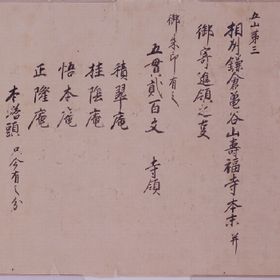 五山第三
相刕鎌倉亀谷山壽福寺本末并
御寄進領之事
御朱印有之
五貫貳百文 寺領
積翠庵
桂陰庵
悟本庵
正隆庵
本塔頭 只今有之分